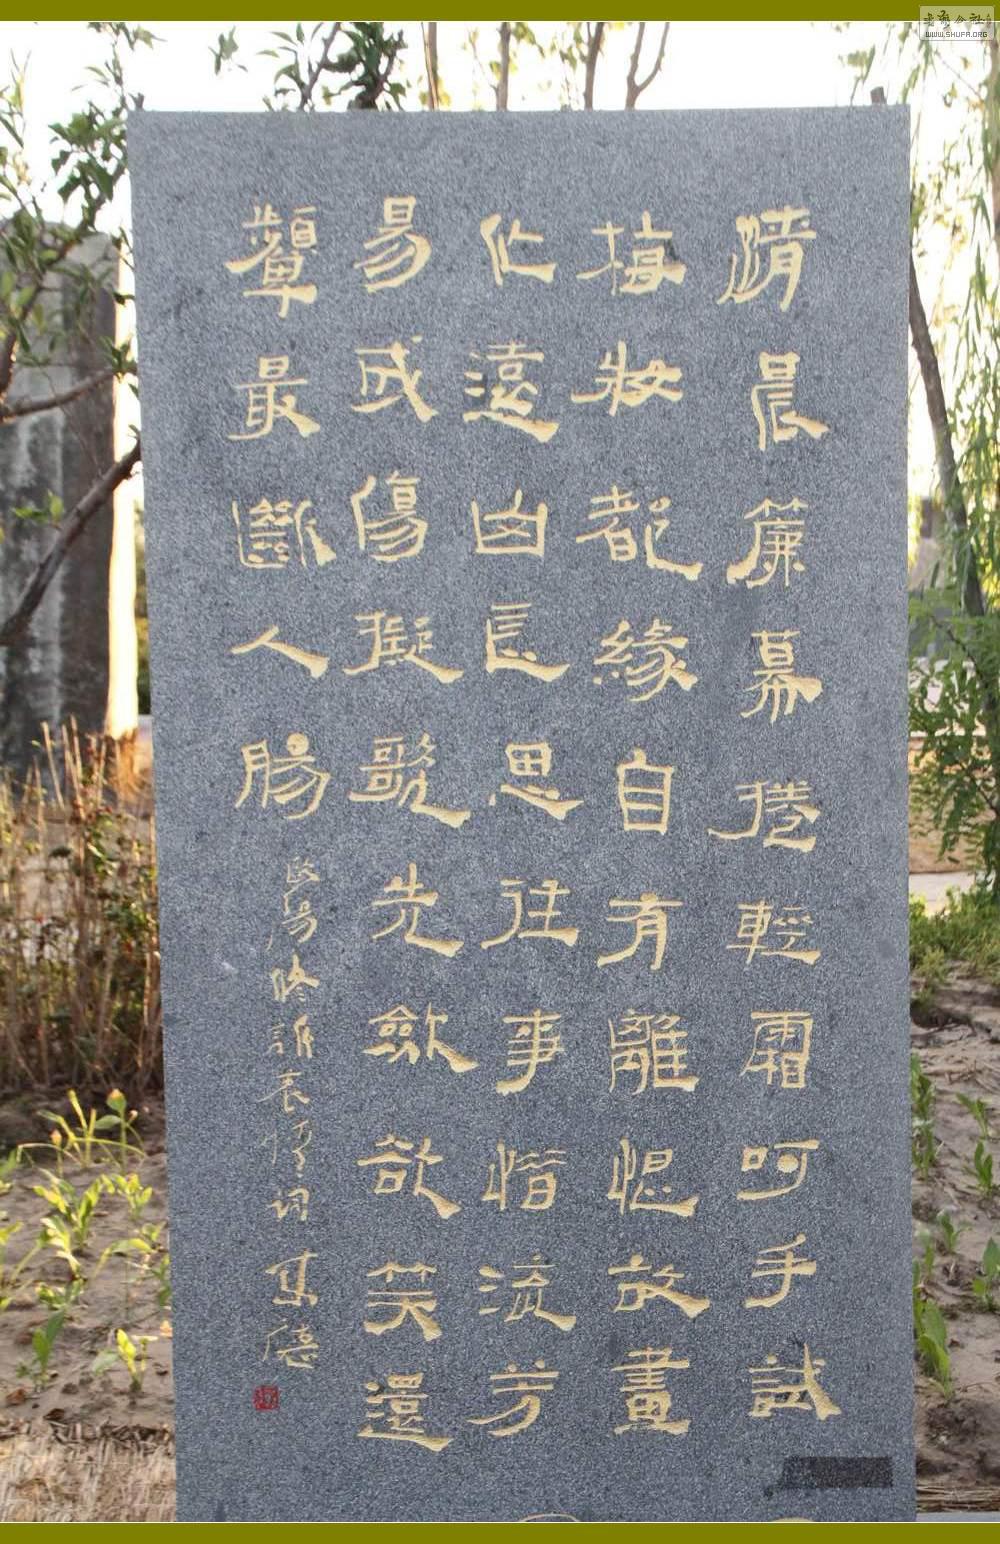 清晨簾幕捲輕霜呵手試
梅妝都緣自有離恨故畫
作遠山長思往事惜流芳
易成傷擬歌先歛欲笑還
顰最斷人腸
歐陽修訴衷情詞
WWW.SHUFA.ORG